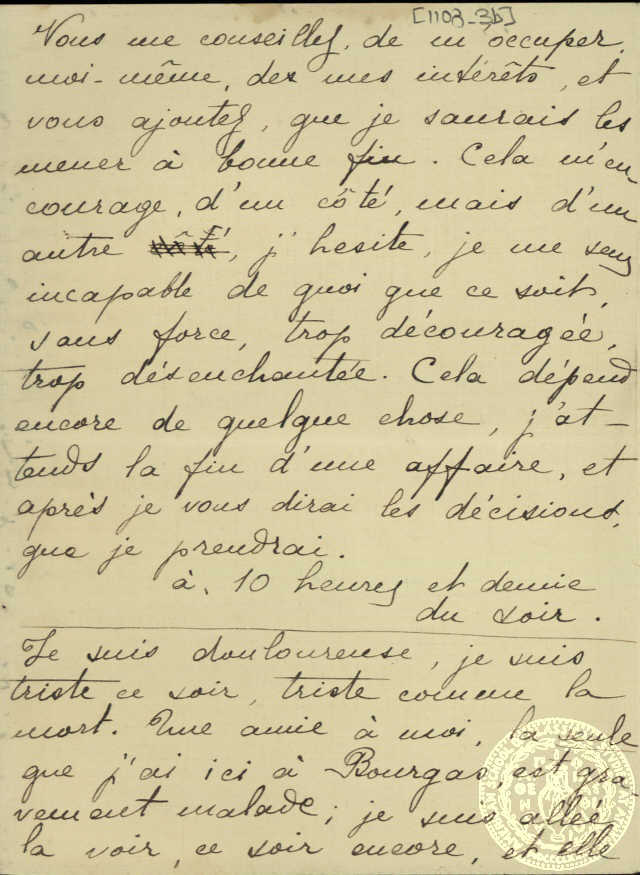 [1103-3b]
Vous me conseillez, de m'occuper,
moi-même, des mes intérêts, et
vous ajoutez, que je saurais les
mener à bonne fin. Cela m'en
courage, d'un côté, mais d'un
autre j'hesite, je me sens
incapable de quoi que ce soit,
sans force, trop découragée,
trop désenchantée. Cela dépend
encore de quelque chose, j'at-
tends la fin d'une affaire, et
après je vous dirai les décisions,
que je prendrai.
à 10 heures et demie
du soir.
Je suis douloureuse, je suis
triste ce soir, triste comme la
mort. Une amie à moi, la seule
que j'ai ici à Bourgas, est gra-
vement malade; je suis allée
la voir, ce soir encore, et elle